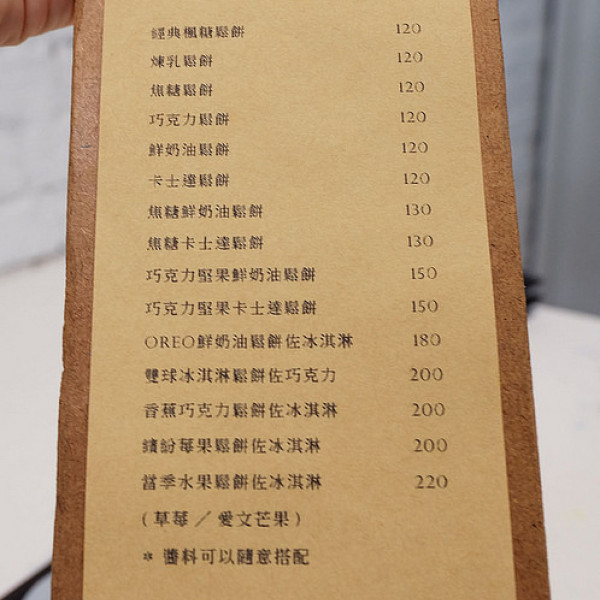 經典楓糖鬆餅 120
煉乳鬆餅 120
焦糖鬆餅 120
巧克力鬆餅 120
鮮奶油鬆餅 120
卡士達鬆餅 120
焦糖鮮奶油鬆餅 130
焦糖卡士達鬆餅 130
巧克力堅果鮮奶油鬆餅 150
巧克力堅果卡士達鬆餅 150
OREO鮮奶油鬆餅佐冰淇淋 180
雙球冰淇淋鬆餅佐巧克力 200
香蕉巧克力鬆餅佐冰淇淋 200
繽紛莓果鬆餅佐冰淇淋 200
當季水果鬆餅佐冰淇淋 220
(草莓／愛文芒果)
* 醬料可以隨意搭配